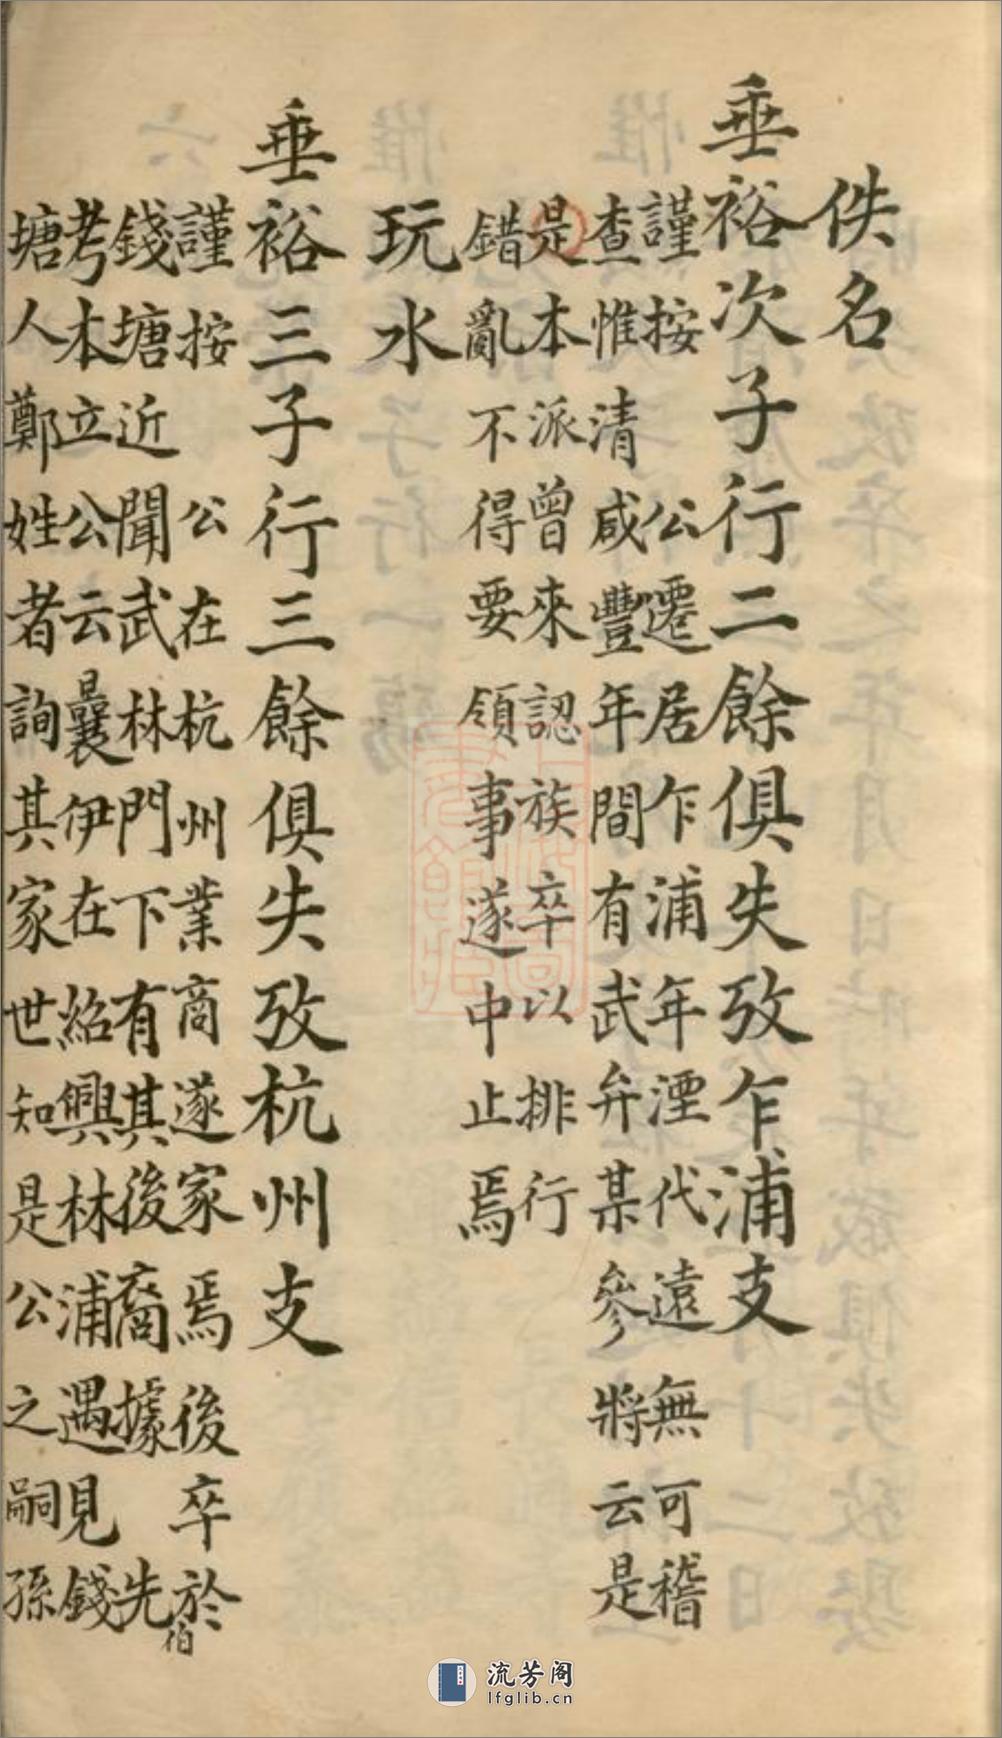 佚名
垂裕次子行二餘俱失攷乍浦支
謹按　公遷居乍浦年湮代遠無可稽
查惟清咸豐年間有武弁某參將云是
是本派曾來認族卒以排行
錯亂不得要領事遂中止焉
玩水
垂裕三子行三餘俱失攷杭州支
謹按　公在杭州業商遂家焉後卒於
錢塘近聞武林門下有其後裔據　先伯
考本立公云曩伊在紹興林浦遇見錢
塘人鄭姓者詢其家世知是公之嗣孫
流芳阁
lfglib.cn